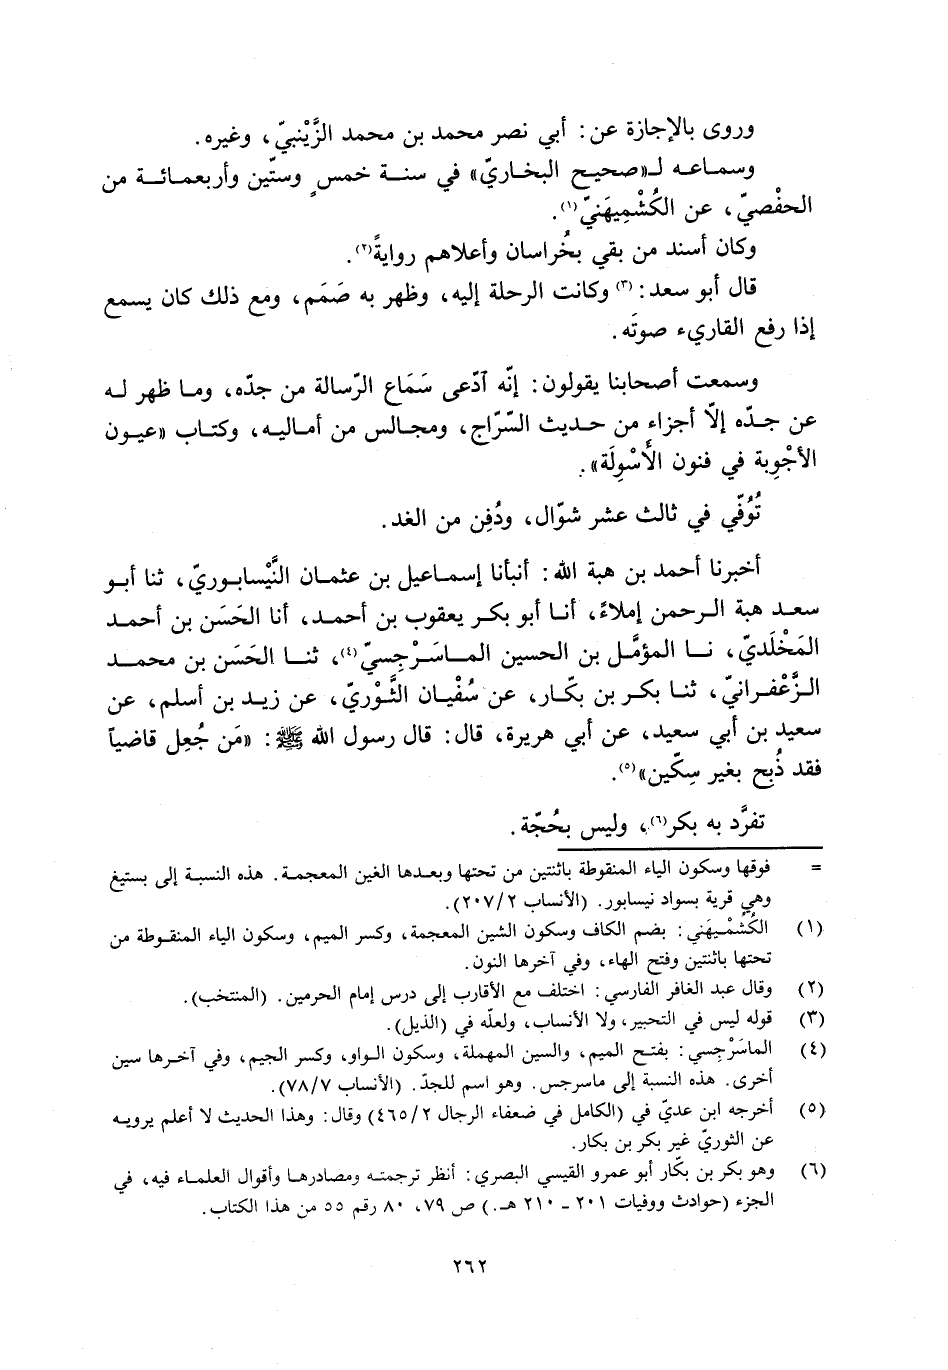 وروى بالإجازة عن: أبي نصر محمد بن محمد الزَّيْنبيّ، وغيره.
وسماعه لـ«صحيح البخاريّ» في سنة خمسٍ وستّين وأربعمائة من
الحفْصيّ، عن الكُشْمِيهَنيّ(١).
وكان أسند من بقي بخُراسان وأعلاهم روايةً(٢).
قال أبو سعد:(٣) وكانت الرحلة إليه، وظهر به صَمَم، ومع ذلك كان يسمع
إذا رفع القاريء صوتَه.
وسمعت أصحابنا يقولون: إنّه آدّعى سَمَاع الرّسالة من جدّه، وما ظهر له
عن جدّه إلاّ أجزاء من حديث السّرّاج، ومجالس من أماليه، وكتاب «عيون
الأجْوِبة في فنون الأَسْوِلَة».
تُوُفّي في ثالث عشر شوّال، ودُفِن من الغد.
أخبرنا أحمد بن هبة الله: أنبأنا إسماعيل بن عثمان النَّيْسابوريّ، ثنا أبو
سعد هبة الرحمن إملاءً، أنا أبو بكر يعقوب بن أحمد، أنا الحَسَن بن أحمد
المَخْلَديّ، نا المؤمَّل بن الحسين الماسَرْجِسيّ(٤)، ثنا الحَسَن بن محمد
الزَّعْفرانيّ، ثنا بكر بن بكّار، عن سُفْيان الثَّوْريّ، عن زيد بن أسلم، عن
سعيد بن أبي سعيد، عن أبي هريرة، قال: قال رسول الله ﷺ: «مَن جُعِل قاضياً
فقد ذُبح بغير سِكّين»(٥).
تفرَّد به بكر(٦)، وليس بحُجّة.
= فوقها وسكون الياء المنقوطة باثنتين من تحتها وبعدها الغين المعجمة. هذه النسبة إلى بستيغ
وهي قرية بسواد نيسابور. (الأنساب ٢٠٧/٢).
(١) الكُشْمْيهَني: بضم الكاف وسكون الشين المعجمة، وكسر الميم، وسكون الياء المنقوطة من
تحتها باثنتين وفتح الهاء، وفي آخرها النون.
(٢) وقال عبد الغافر الفارسي: اختلف مع الأقارب إلى درس إمام الحرمين. (المنتخب).
(٣) قوله ليس في التحبير، ولا الأنساب، ولعلّه في (الذيل).
(٤) الماسَرْجِسي: بفتح الميم، والسين المهملة، وسكون الواو، وكسر الجيم، وفي آخرها سين
أخرى. هذه النسبة إلى ماسرجس. وهو اسم للجدّ. (الأنساب ٧٨/٧).
(٥) أخرجه ابن عديّ في (الكامل في ضعفاء الرجال ٤٦٥/٢) وقال: وهذا الحديث لا أعلم يرويه
عن الثوريّ غير بكر بن بكار.
(٦) وهو بكر بن بكّار أبو عمرو القيسي البصري: أنظر ترجمته ومصادرها وأقوال العلماء فيه، في
الجزء (حوادث ووفيات ٢٠١ ـ ٢١٠ هـ.) ص ٧٩، ٨٠ رقم ٥٥ من هذا الكتاب.
٢٦٢